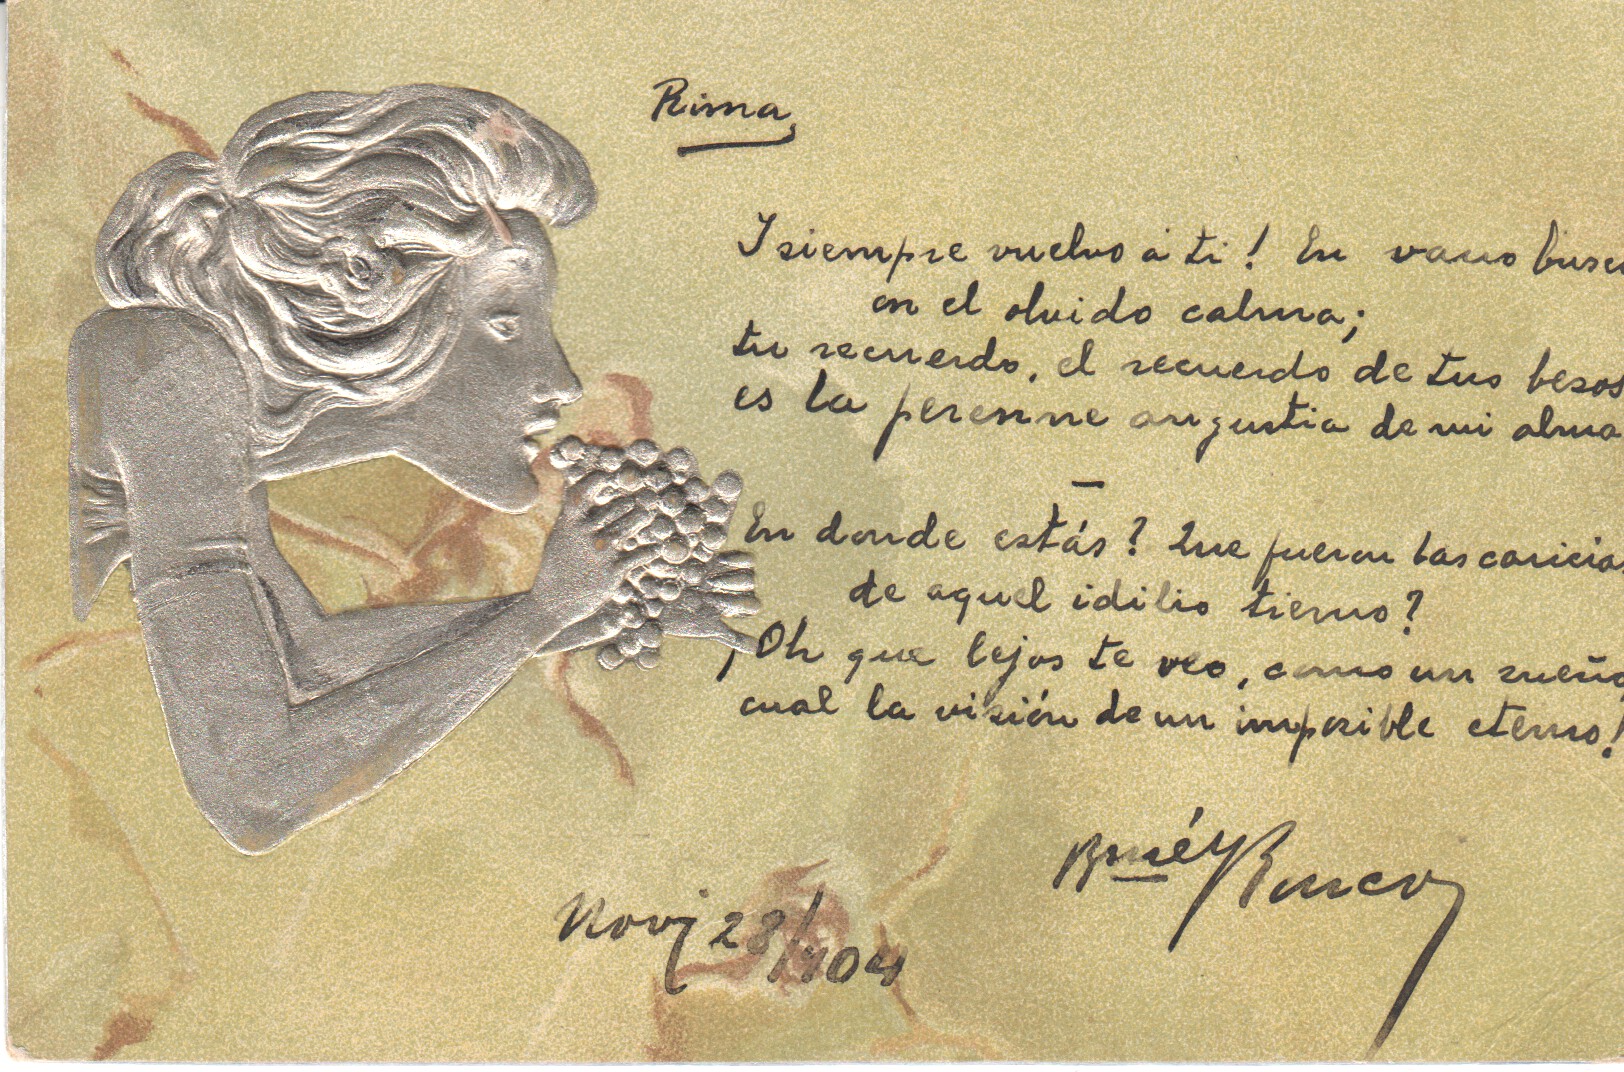 Rima
I siempre vuelvo á ti! En vano busco
en el olvido calma;
tu recuerdo, el recuerdo de tus besos
es la perenne angustia de mi alma
En donde estás? Que fueron las caricias
de aquel idilio tierno?
¡Oh que lejos te veo, como un sueño
cual la visión de un imposible eterno!
Novi 28/904